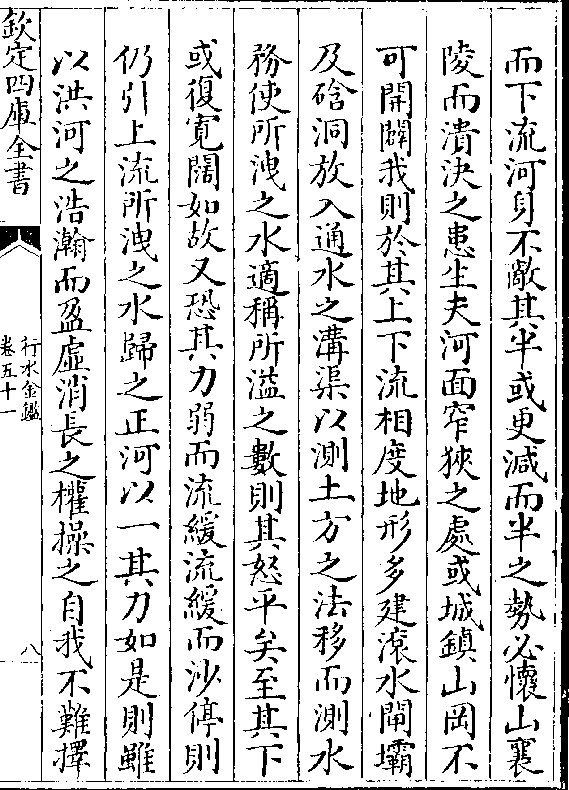 而下流河身不敵其半或更減而半之勢必懷山襄
陵而潰決之患生夫河面窄狹之處或城鎮山岡不
可開闢我則於其上下流相度地形多建滾水閘壩
及磘洞放入通水之溝渠以測土方之法移而測水
務使所洩之水適稱所溢之數則其怒平矣至其下
或復寛闊如故又恐其力弱而流緩流緩而沙停則
仍引上流所洩之水歸之正河以一其力如是則雖
以洪河之浩瀚而盈虛消長之權操之自我不難擇
欽定四庫全書
行水金鑑
卷五十一
八